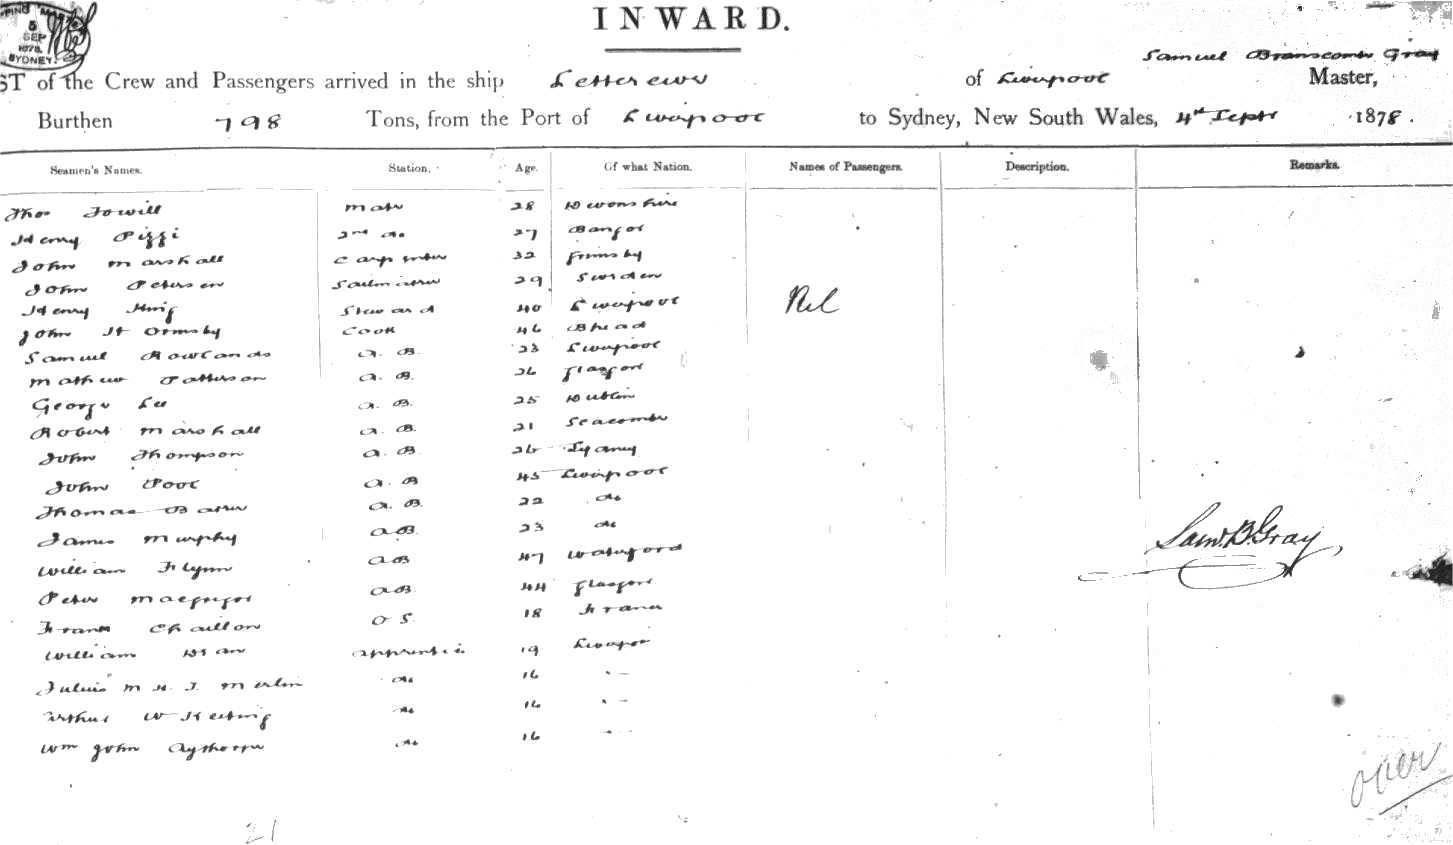 INWARD.
SHIPPING MASTER 5 SEP 1878. SYDNEY.
Samuel Branscombe Gray
ST of the Crew and Passengers arrived in the ship Letterewe of Liverpool Master,
Burthen 798 Tons, from the Port of Liverpool to Sydney, New South Wales, 4th Septr 1878.
Seamen's Names. Station. Age. Of what Nation. Names of Passengers. Description. Remarks.
Thos Towill Mate 28 Devonshire
Henry Pizzi 2nd do 27 Bangor
John Marshall Carpenter 32 Grimsby
John Petersen Sailmaker 29 Sweden
Henry King Steward 40 Liverpool Nil
John H Ormsby Cook 46 Bhead
Samuel Rowlands A. B. 23 Liverpool
Mathew Patterson A. B. 26 Glasgow
George Lee A. B. 25 Dublin
Robert Marshall A. B. 21 Seacombe
John Thompson A. B. 26 Sydney
John Pool A. B 45 Liverpool
Thomas A. B. 22 do
James Murphy AB. 23 do
Saml. B. Gray
William Flynn AB 47 Waterford
Peter Macgregor AB. 44 Glasgow
Frank Chaillon O S. 18 France
William Apprentice 19 Liverpool
Julius M. H. J. Merlin do 16 " —
Arthur W Keeting do 16 " —
Wm John Aythorpe do 16 " —
over
21